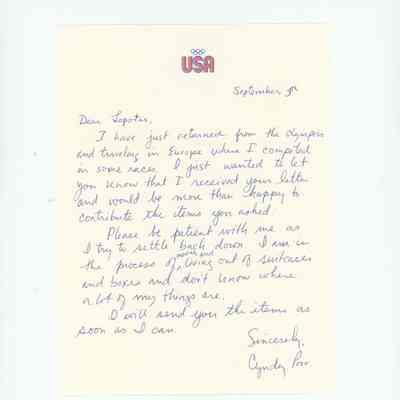 USA
September 5th
Dear Lopotus,
I have just returned from the Olympics
and traveling in Europe where I competed
in some races. I just wanted to let
you know that I received your letter
and would be more than happy to
contribute the items you asked.
Please be patient with me as
I try to settle back down. I am in
the process of moving and living out of suitcases
and boxes and don't know where
a lot of my things are.
I will send you the items as
soon as I can.
Sincerely,
Cyndy Poor